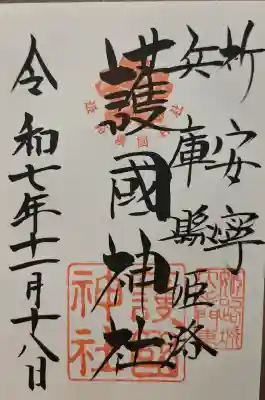 祈安寧
兵庫縣姫路
護國神社
令和七年十一月十八日
護國神社